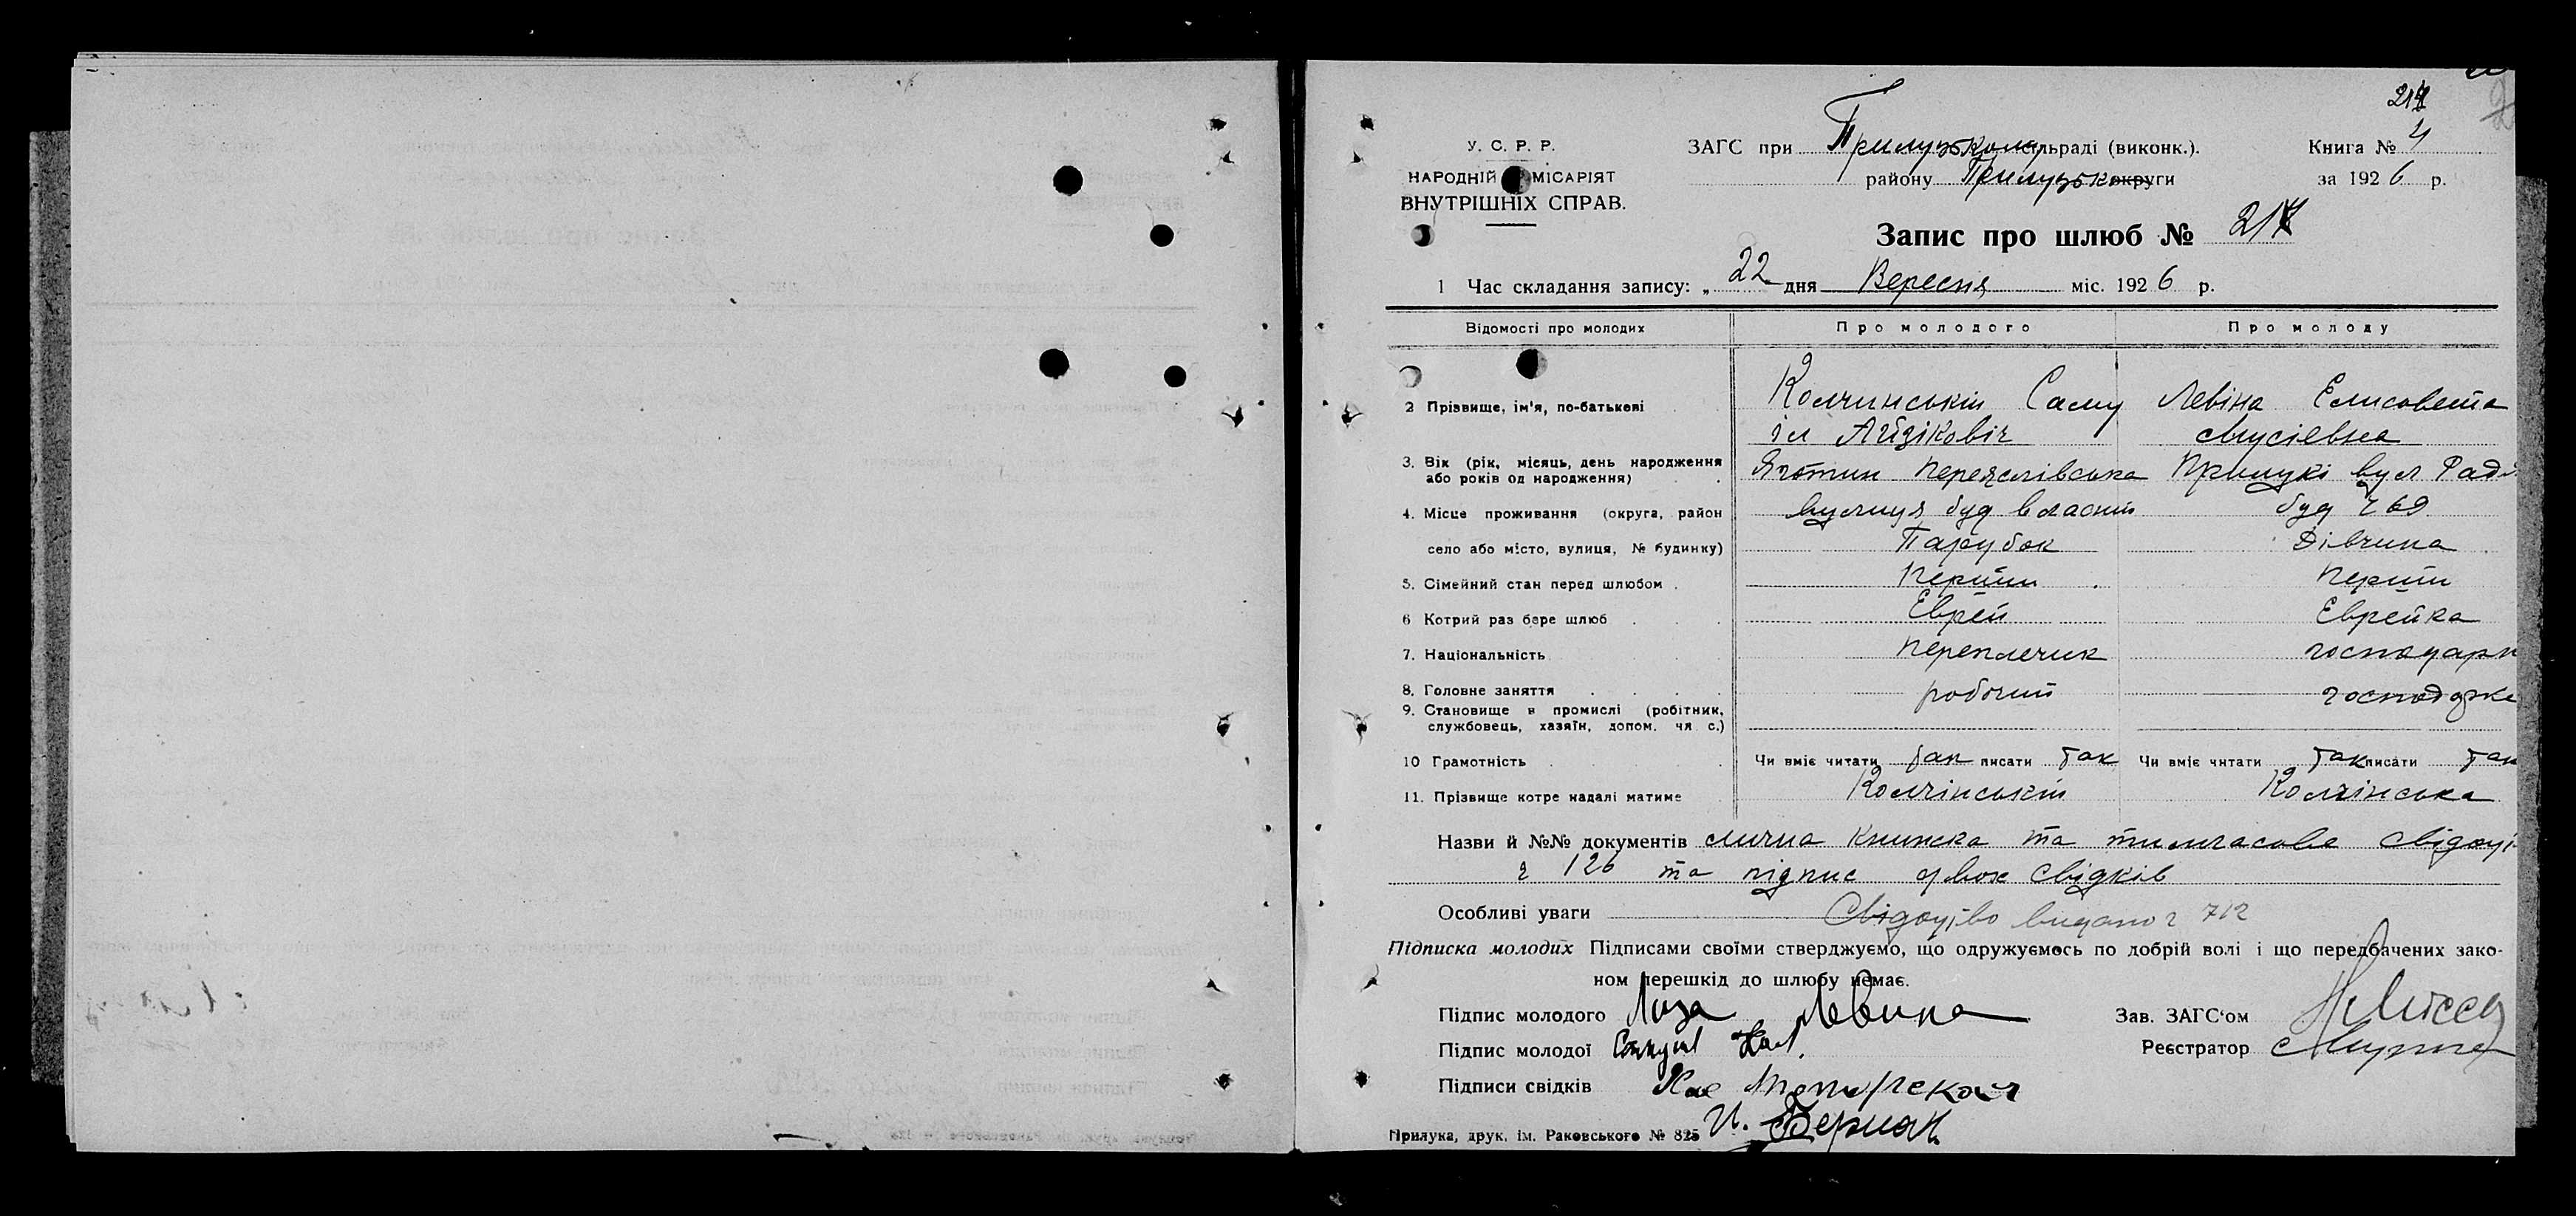 У. С. Р. Р.
ЗАГС при Прилуцькому сільраді (виконк.).
Книга № 4
НАРОДНІЙ КОМІСАРІЯТ
району Прилуцьк округи
за 1926 р.
ВНУТРІШНІХ СПРАВ.
Запис про шлюб № 217
1 Час складання запису: „ 22 дня Вересня міс. 1926 р.
Відомості про молодих Про молодого Про молоду
2 Прізвище, ім'я, по-батькові Колчинській Саму Левіна Елисовета
іл Айзіковіч Мусіевна
3. Вік (рік, місяць, день народження Яготин Переяслівська Прилукі вул Рад
або років од народження)
4. Місце проживання (округа, район вулиця буд власний буд ч 69
село або місто, вулиця, № будинку) Парубок Дівчина
5. Сімейний стан перед шлюбом . Перший Перший
6 Котрий раз бере шлюб . . . Еврей Еврейка
7. Національність Переплечик господарк
8. Головне заняття . . . . робочий господарка
9. Становище в промислі (робітник,
службовець, хазяїн, допом. чл с.)
10 Грамотність . . Чи вміє читати так писати так Чи вміє читати так писати так
11. Прізвище котре надалі матиме Колчінський Колчінська
Назви й №№ документів лична книжка та тимчасове свідоцт
ч 126 та підпис двох свідків
Особливі уваги Свідоцтво видано ч 712
Підписка молодих Підписами своїми стверджуємо, що одружуємось по добрій волі і що передбачених зако-
ном перешкід до шлюбу немає.
Підпис молодого Лиза Левина
Зав. ЗАГС'ом
Підпис молодої
Реєстратор
Підписи свідків
Прилука, друк. ім. Раковського № 825